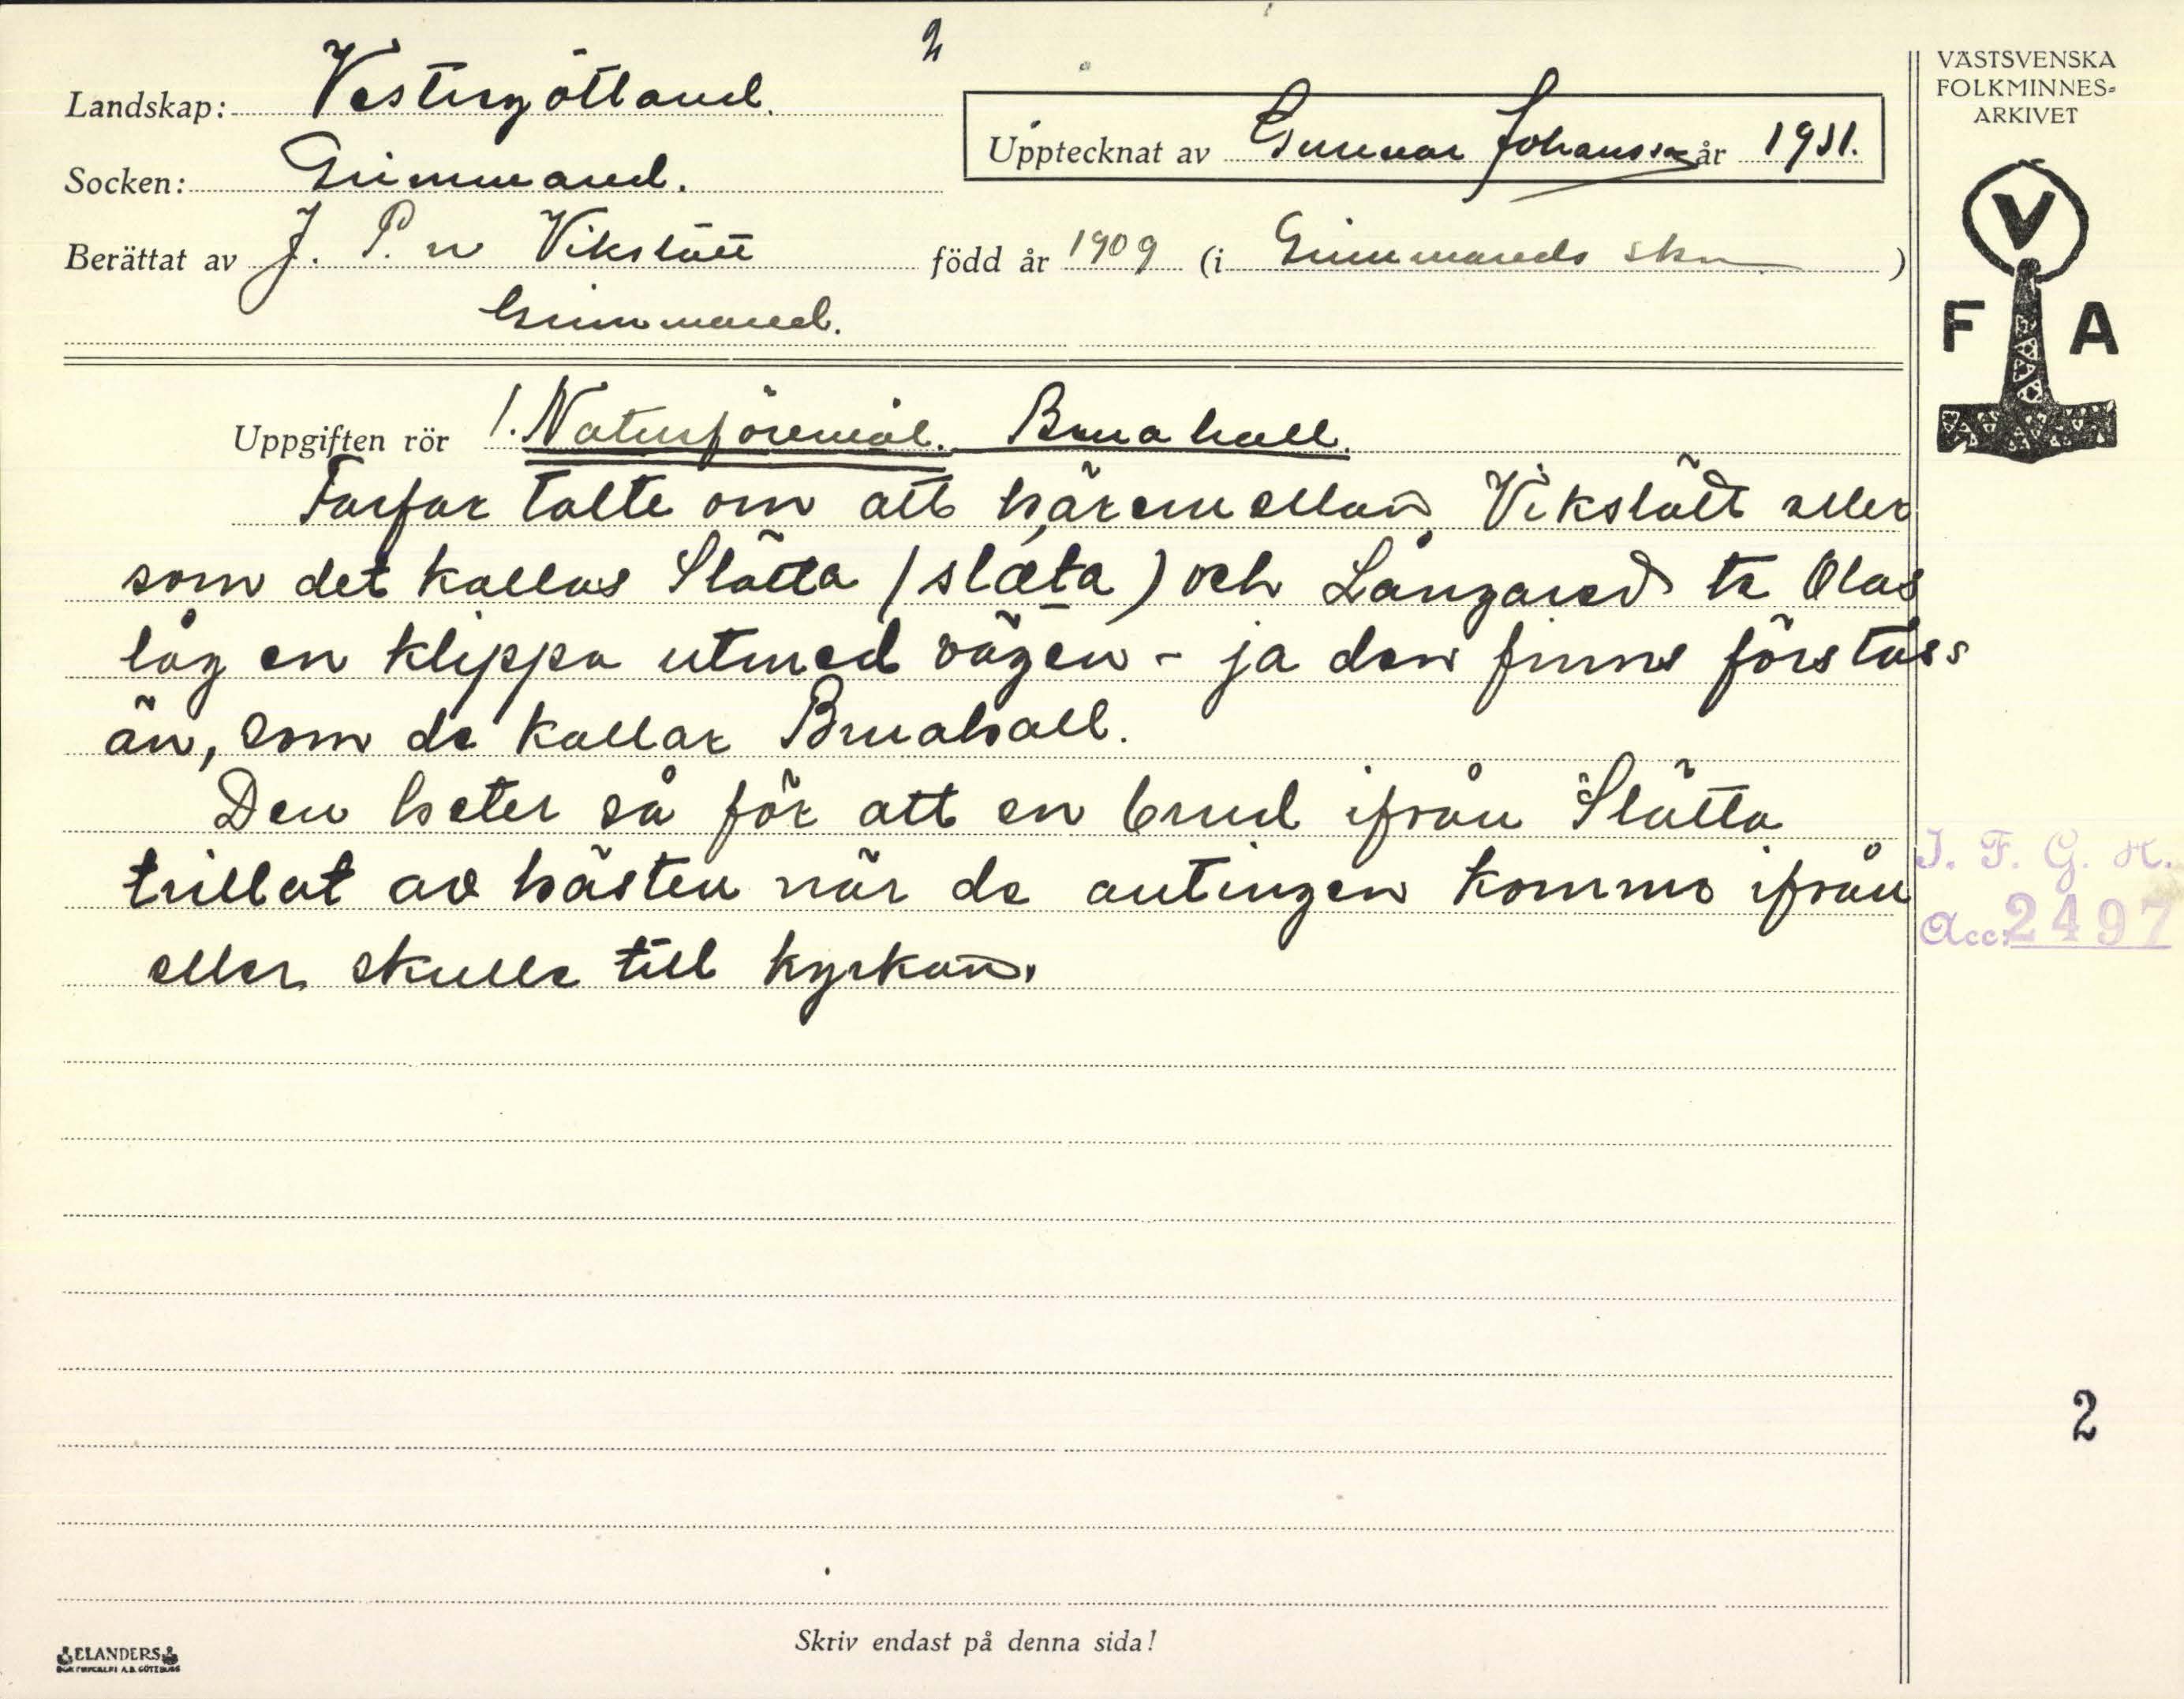 2
VÄSTSVENSKA
FOLKMINNES-
ARKIVET
Landskap: Vestergötland.
Upptecknat av Gunnar Johansson år 1931.
Socken: Grimmared.
Berättat av J. P. n Vikslätt född år 1909 (i Grimmareds skn )
Grimmared.
V
F A
Uppgiften rör 1. Naturföremål. Bruahall.
Farfar talte om att häremellan Vikslätt eller
som det kallas Slätta (slæta) och Långared te Olas
låg en klippa utmed vägen - ja den finns förståss
än, som de kallar Bruahall.
Den heter så för att en brud ifrån Slätta
trillat av hästen när de antingen kommo ifrån
eller skulle till kyrkan.
I. F. G. H.
Acc. 2497
2
Skriv endast på denna sida!
ELANDERS